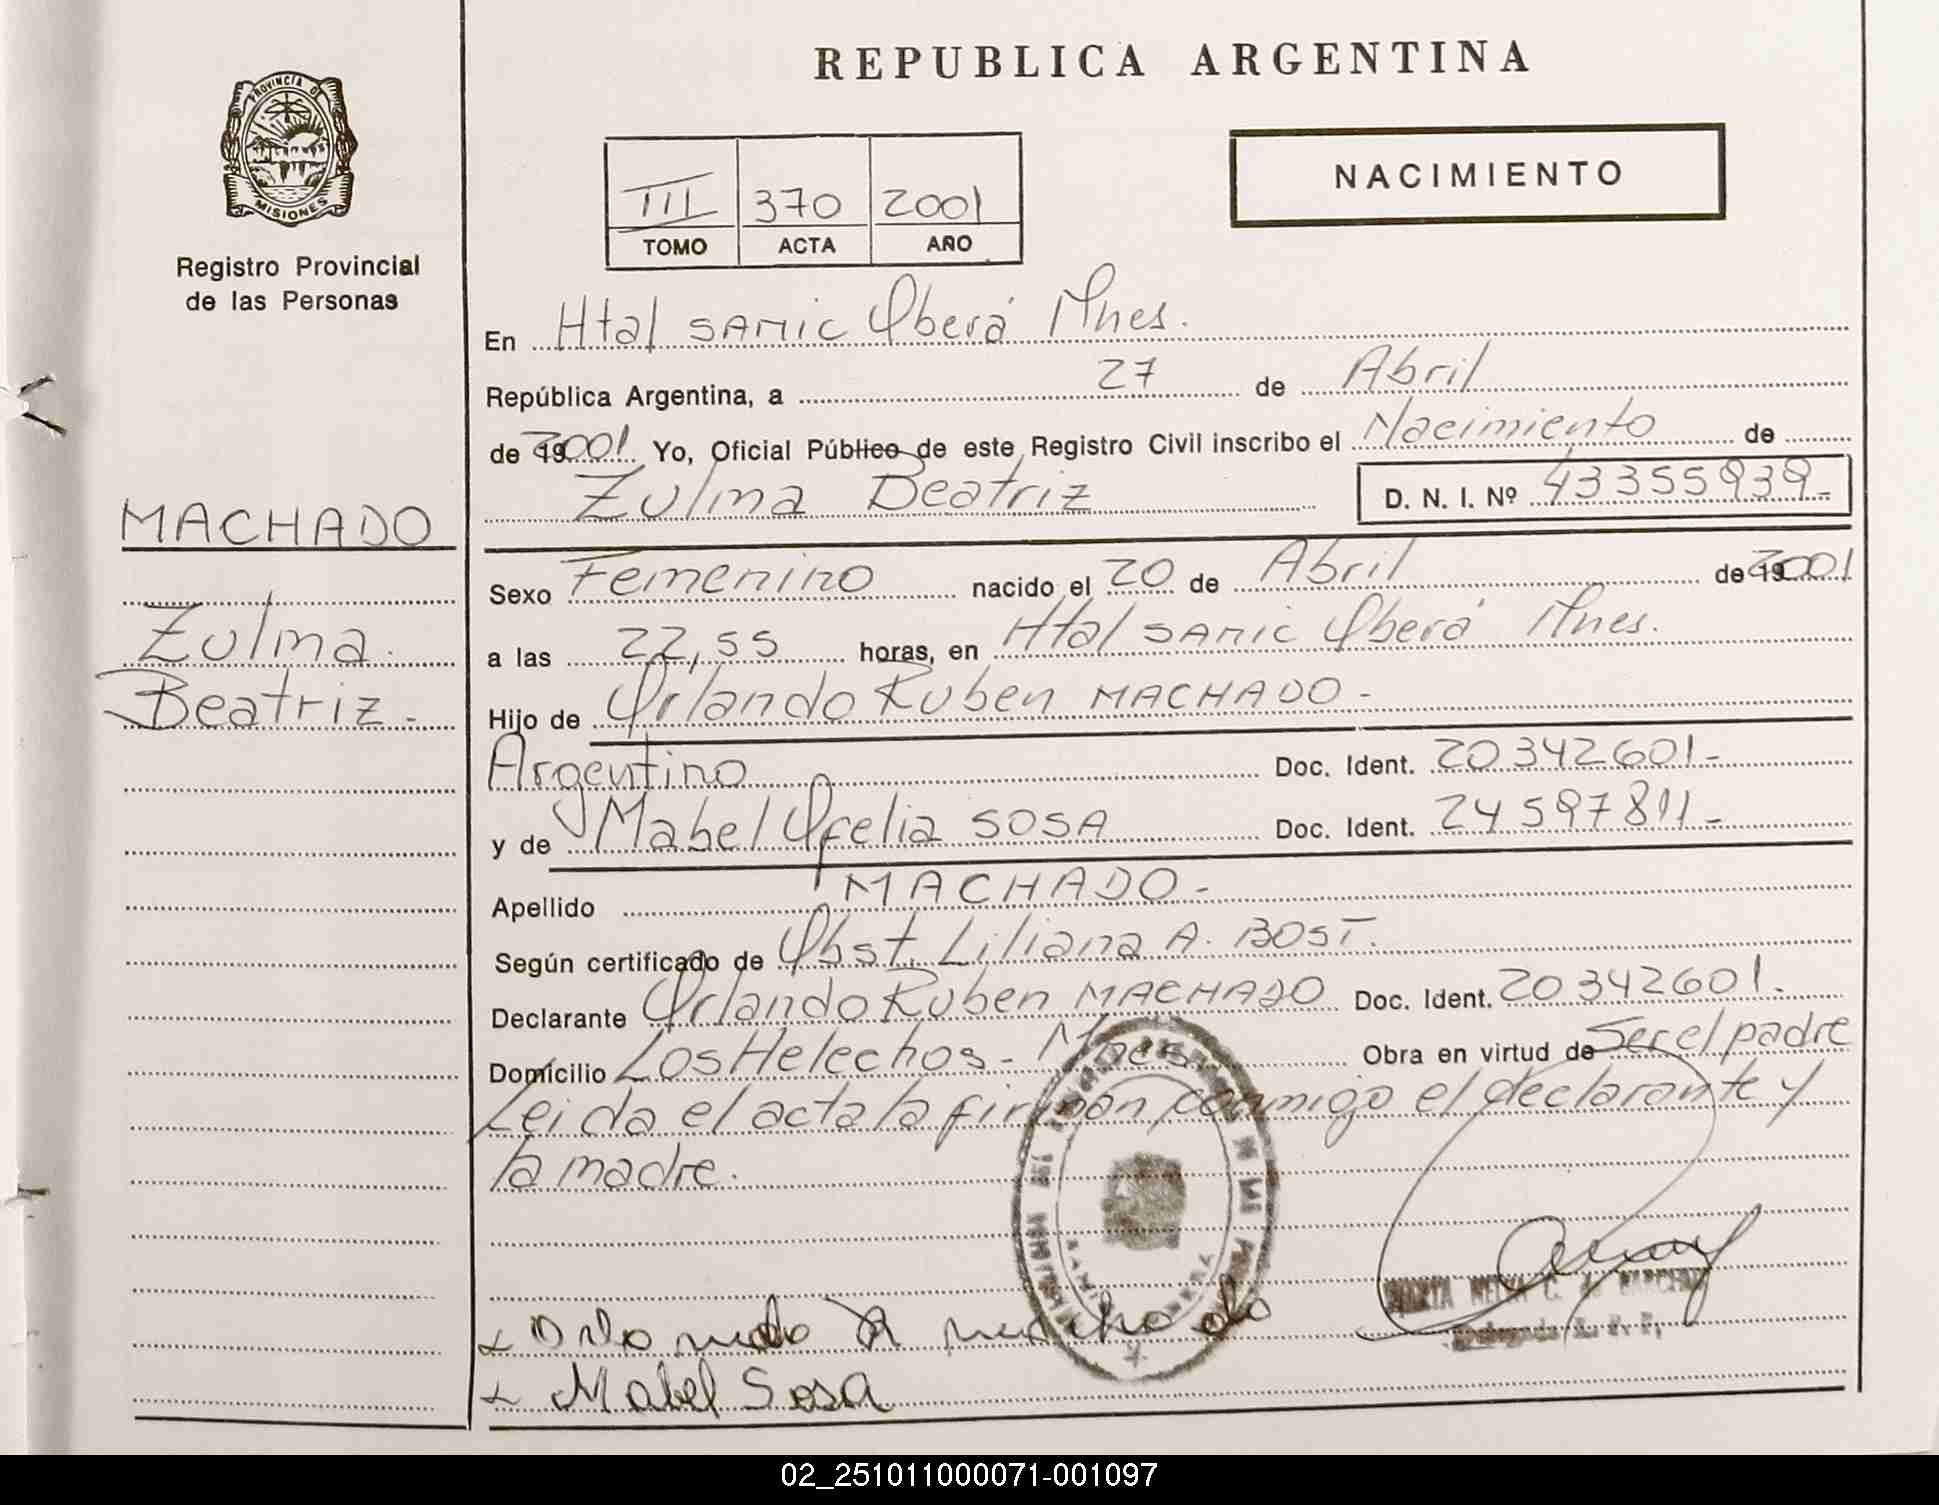 PROVINCIA D
MISIONES
Registro Provincial
de las Personas
REPUBLICA ARGENTINA
III 370 2001
TOMO ACTA AÑO
NACIMIENTO
En Htal SAMIC Oberá Mnes.
República Argentina, a 27 de Abril
de 2001 Yo, Oficial Público de este Registro Civil inscribo el Nacimiento de
Zulma Beatriz D. N. I. Nº 43355939-
MACHADO
Zulma
Beatriz-
Sexo Femenino nacido el 20 de Abril de 2001
a las 22,55 horas, en Htal SAMIC Oberá Mnes.
Hijo de Orlando Ruben MACHADO-
Argentino Doc. Ident. 20342601-
y de Mabel Ofelia SOSA Doc. Ident. 24597811-
Apellido MACHADO-
Según certificado de Obst. Liliana A. BOST.
Declarante Orlando Ruben MACHADO Doc. Ident. 20342601.
Domicilio Los Helechos - Mnes. Obra en virtud de Ser el padre
Leida el acta la firman conmigo el declarante y
la madre.
Orlando R machado
Mabel Sosa
02_251011000071-001097